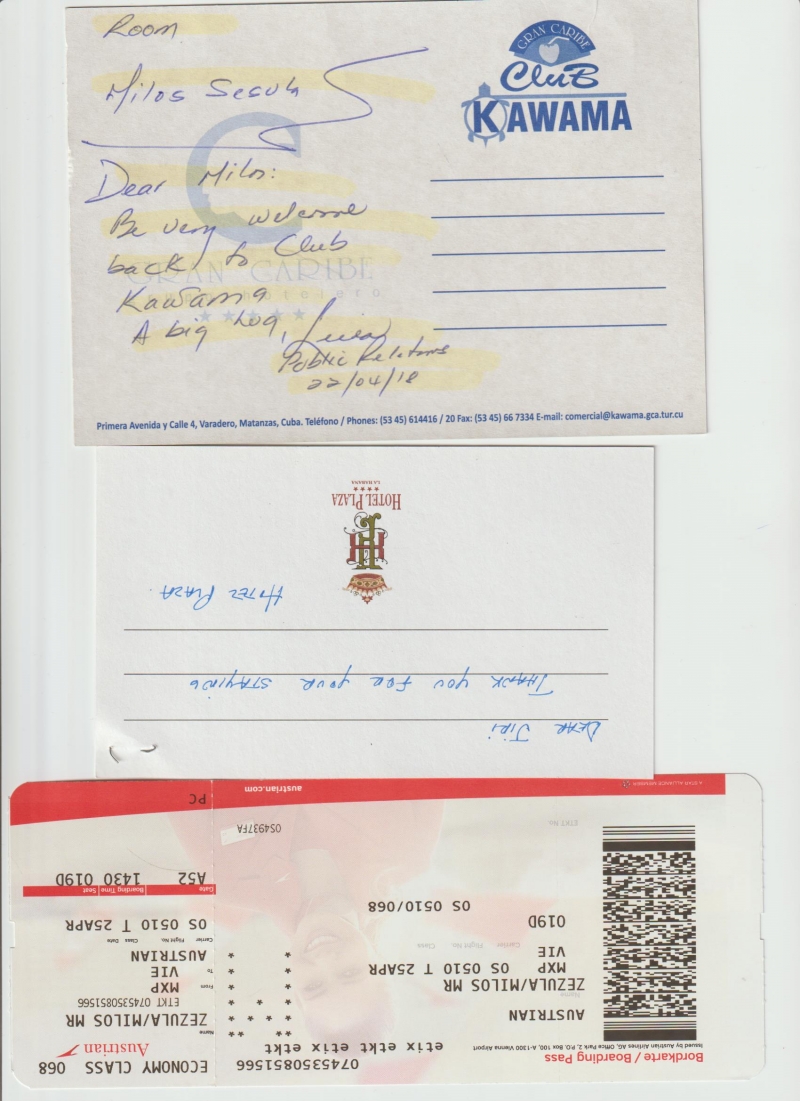 Room
Milos Sesula
GRAN CARIBE
CluB
KAWAMA
Dear Milos:
Be very welcome
back to Club
Kawama
A big hug,
Public Relations
22/04/18
GRAN CARIBE
Primera Avenida y Calle 4, Varadero, Matanzas, Cuba. Teléfono / Phones: (53 45) 614416 / 20 Fax: (53 45) 66 7334 E-mail: comercial@kawama.gca.tur.cu
DEAR JIRI
THANK YOU FOR YOUR STAYING
HOTEL PLAZA.
HOTEL PLAZA
★★★★
LA HABANA
Bordkarte / Boarding Pass
Issued by Austrian Airlines AG, Office Park 2, P.O. Box 100, A-1300 Vienna Airport
0745350851566
etix etkt etix etkt
AUSTRIAN
Name
ZEZULA/MILOS MR
MXP OS 0510 T 25APR
VIE
Carrier Flight No. Class
019D
OS 0510/068
ETKT No.
OS4937FA
A STAR ALLIANCE MEMBER
austrian.com
ECONOMY CLASS 068
Austrian
Name
ZEZULA/MILOS MR
ETKT 0745350851566
From
MXP
To
VIE
AUSTRIAN
Carrier Flight No. Class Date
OS 0510 T 25APR
Gate Boarding Time Seat
A52 1430 019D
PC